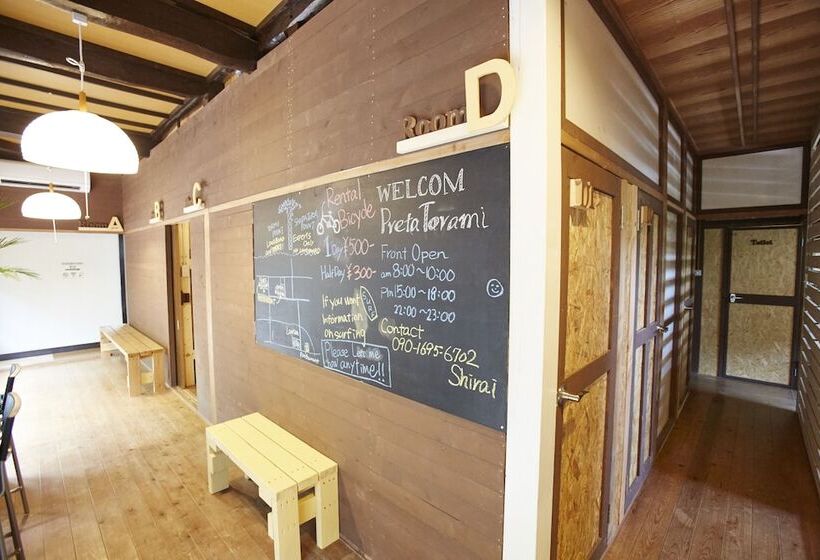 Room D
B
C
Room A
D
Toilet
Rental
Bicycle
1Day ¥500-
Half Day ¥300-
WELCOM
Preta Torami
Front Open
am 8:00~10:00
Pm 15:00~18:00
22:00~23:00
If you want
Information
On surfing
Please let me
know anytime!!
Contact
090-1695-6702
Shirai
Experts
Only